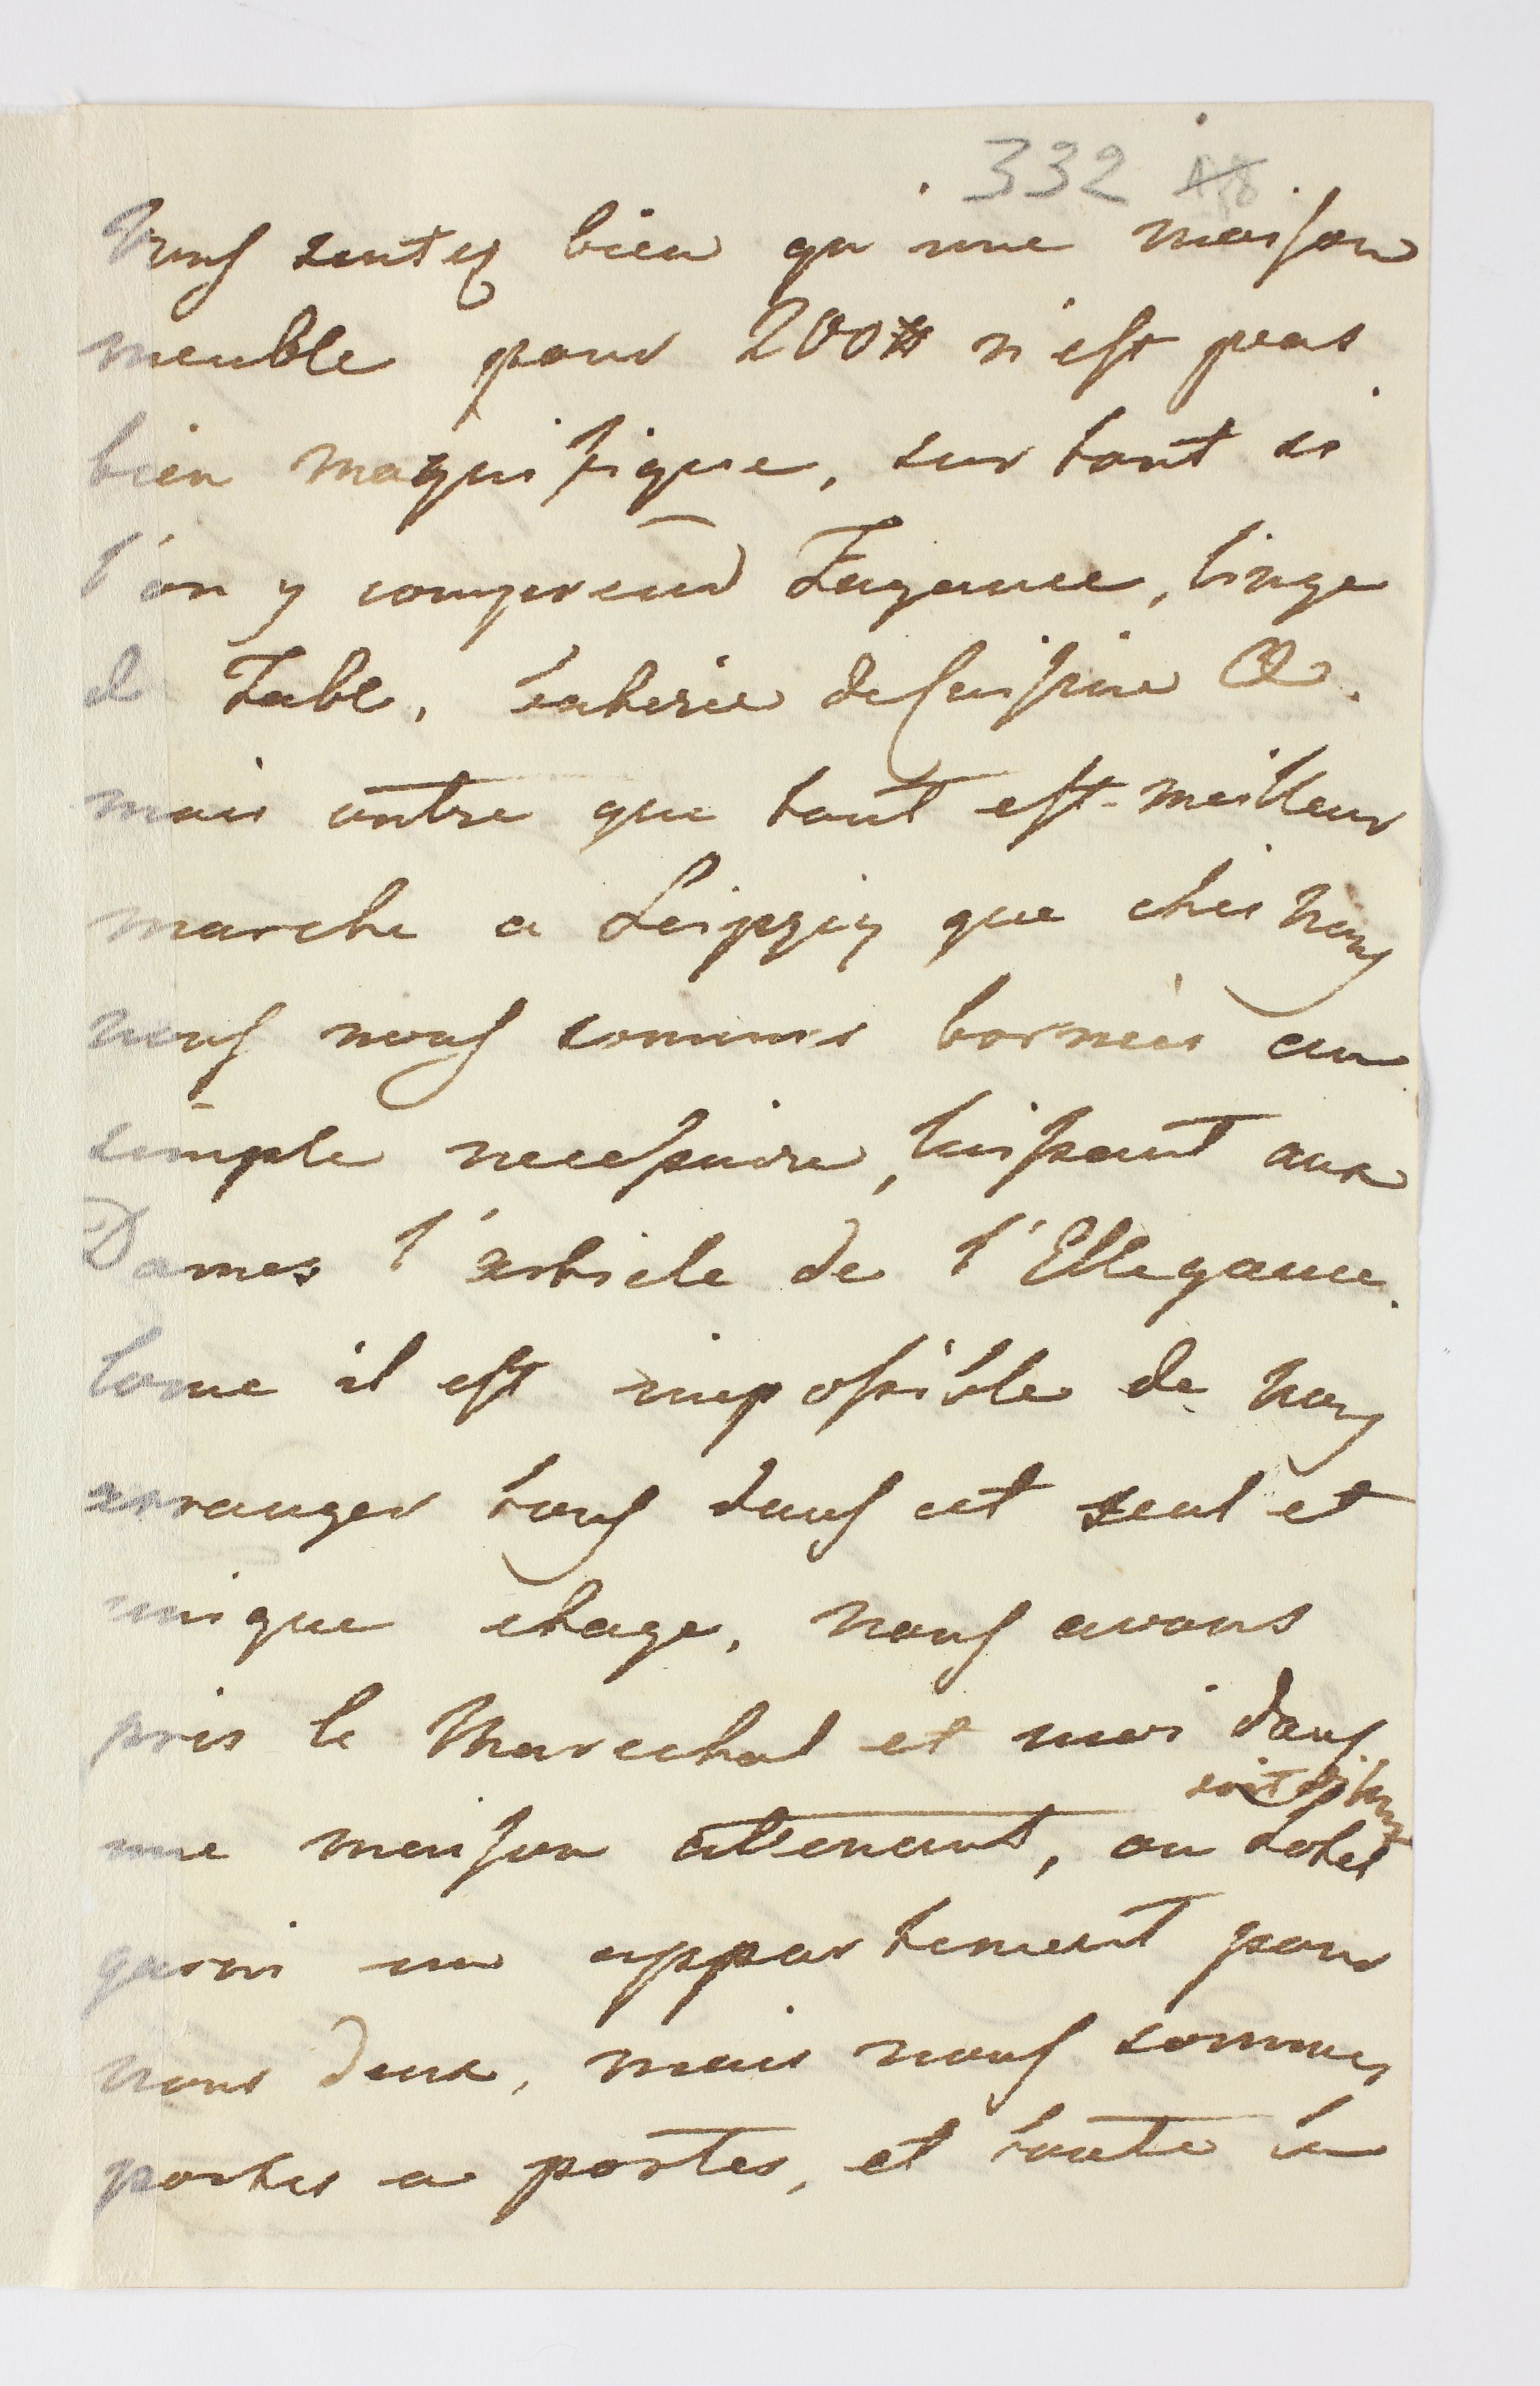 332 18
Vous sentez bien qu'une maison
meuble pour 200# n'est pas
bien magnifique, sur tout si
l'on y comprend Fayance, linge
d Table, baterie de Cuisine &.
mais outre que tout est meilleur
marche a Leipzig que ches nous
nous nous sommes bornées au
simple necessaire, laissant aux
Dames l'article de l'Ellegance.
Come il est impossible de nous
arranger tous dans cet seul et
unique etage, nous avons
pris le Marechal et moi dans
une maison attenant, ou hotel
soit disant
garni un appartement pour
nous deux, mais nous sommes
portes a portes, et toute la